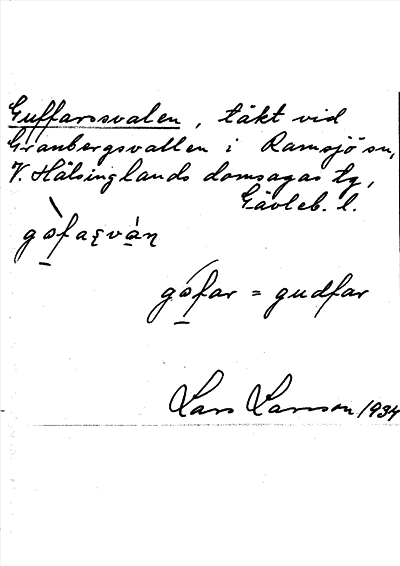 Guffarsvalen, täkt vid
Granbergsvallen i Ramsjö sn,
V. Hälsinglands domsagas tg,
Gävleb. l.
gòfaʂván
gófar = gudfar
Lars Larsson 1934